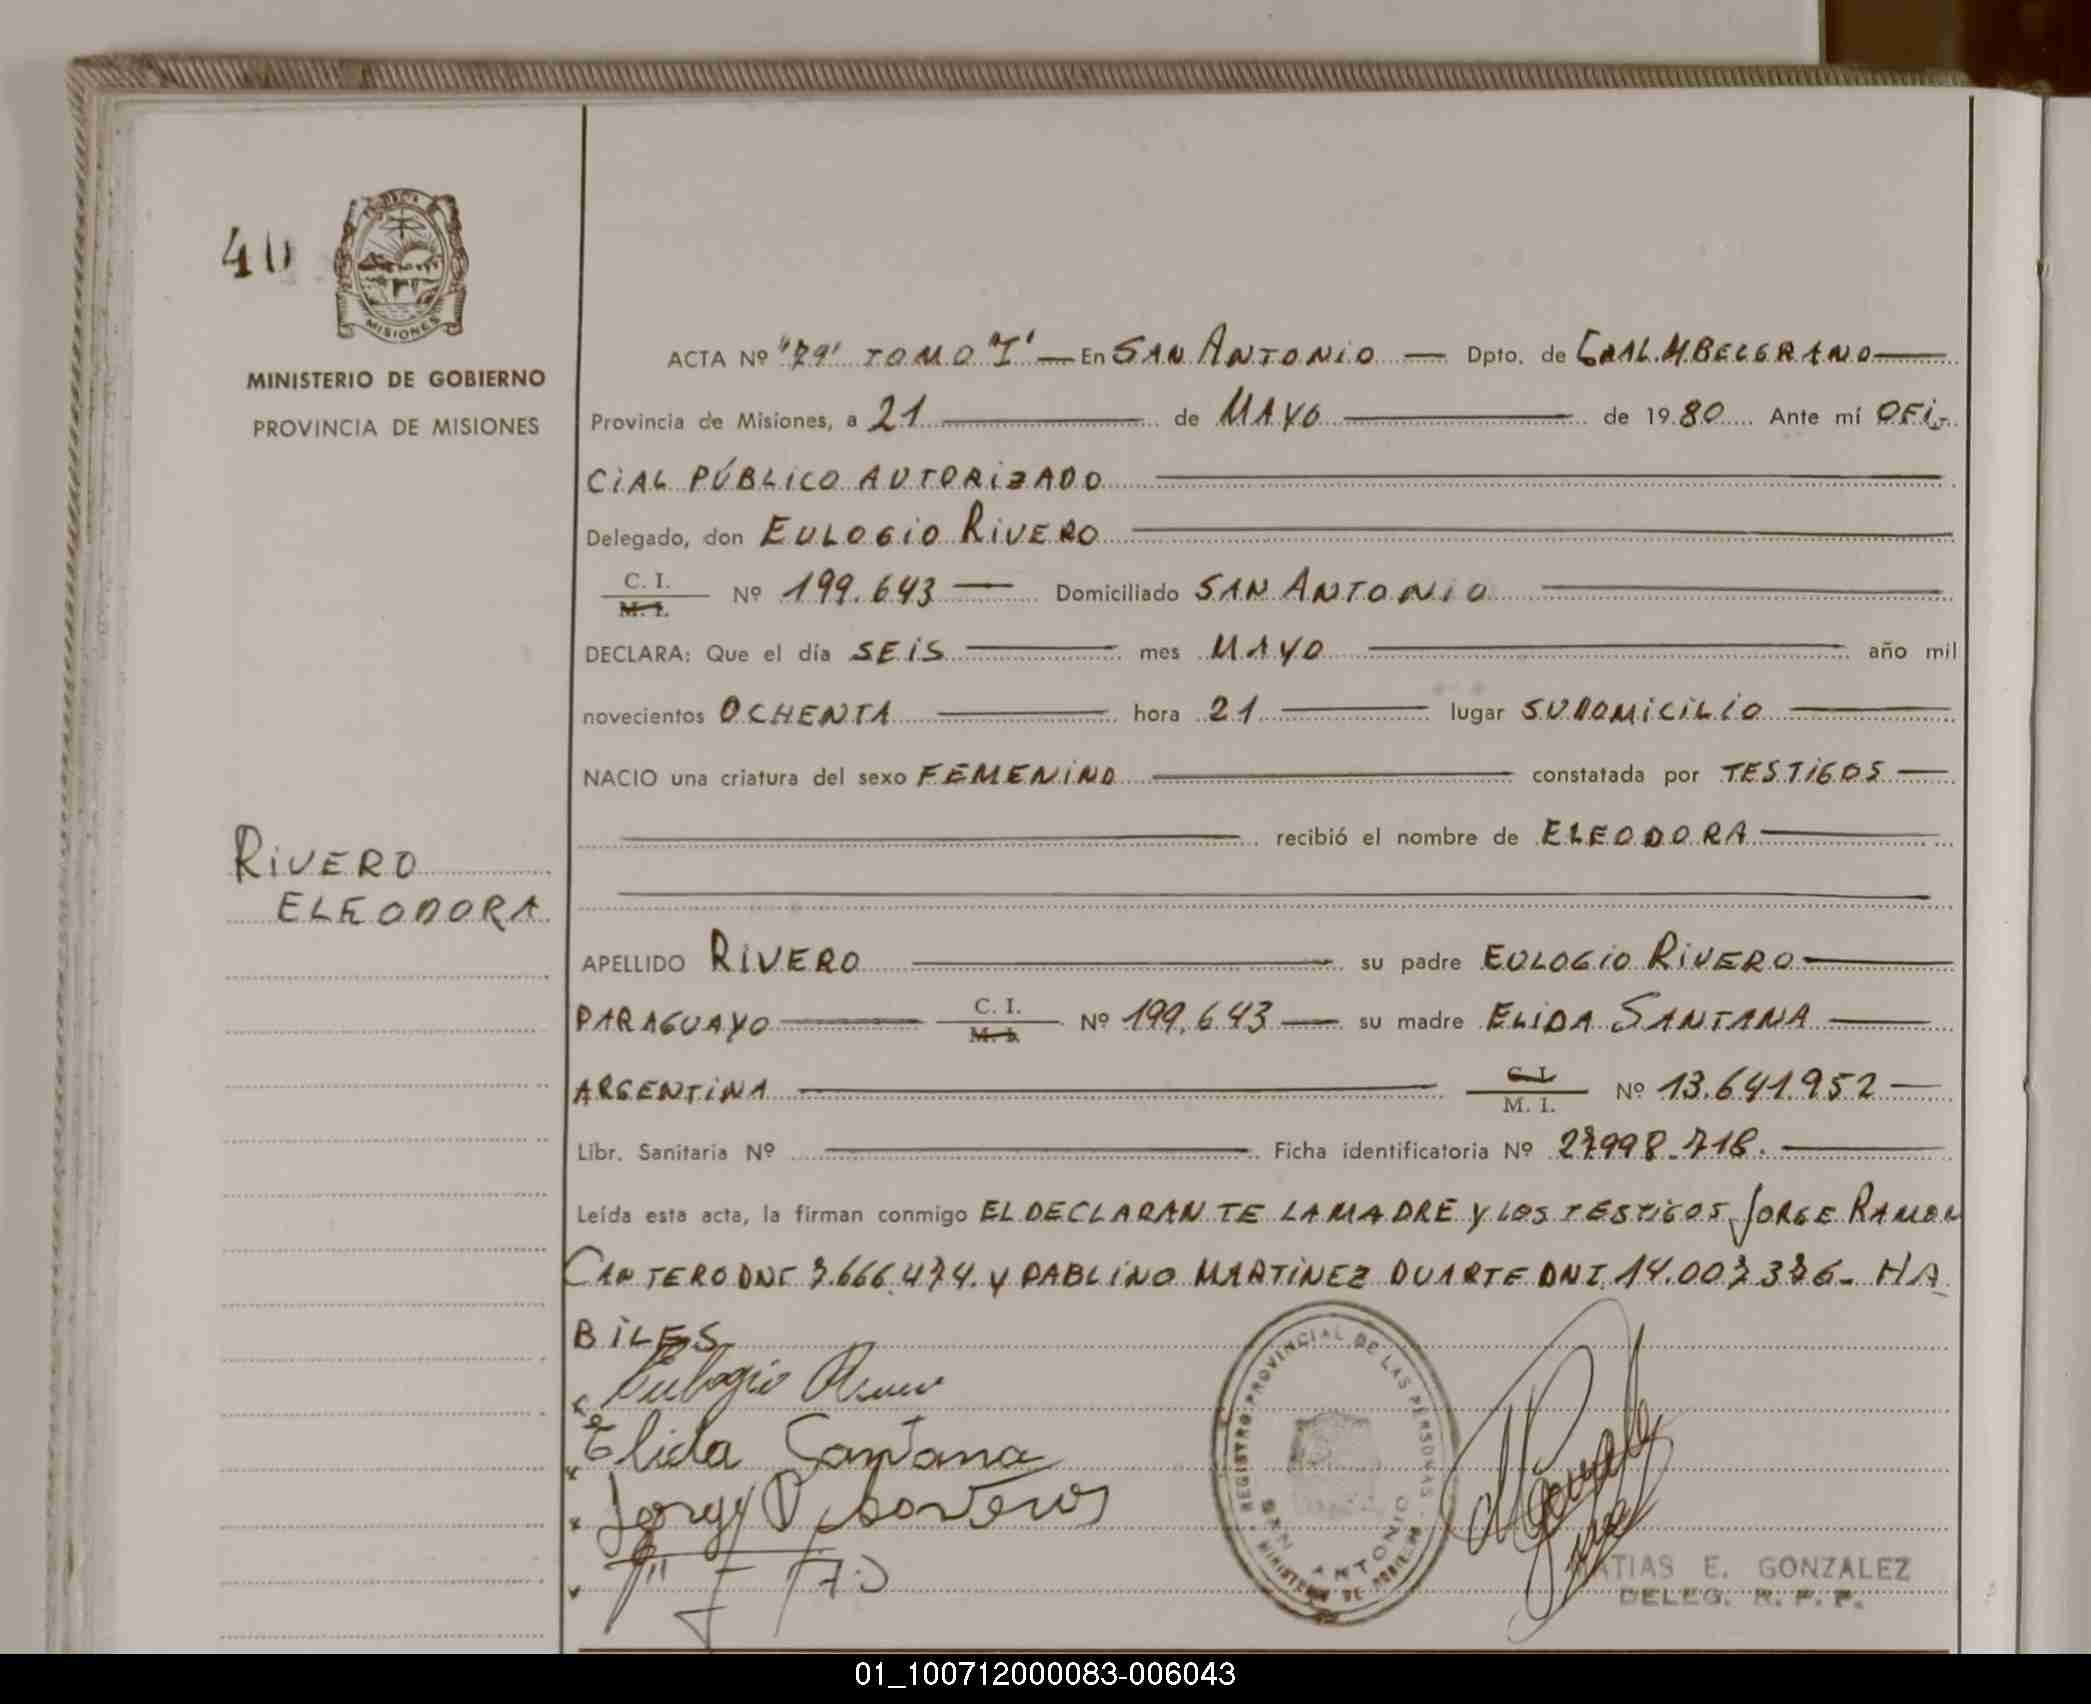 40
MISIONES
MINISTERIO DE GOBIERNO
PROVINCIA DE MISIONES
RIVERO
ELEODORA
ACTA Nº "79" TOMO "I" — En SAN ANTONIO — Dpto. de GRAL. M. BELGRANO —
Provincia de Misiones, a 21 — de MAYO — de 1980 Ante mí OFI-
CIAL PÚBLICO AUTORIZADO —
Delegado, don EULOGIO RIVERO —
C. I.
M. I. Nº 199.643 — Domiciliado SAN ANTONIO —
DECLARA: Que el día SEIS — mes MAYO — año mil
novecientos OCHENTA — hora 21 — lugar SU DOMICILIO —
NACIO una criatura del sexo FEMENINO — constatada por TESTIGOS —
— recibió el nombre de ELEODORA —
APELLIDO RIVERO — su padre EULOGIO RIVERO —
PARAGUAYO — C. I.
M. I. Nº 199.643 — su madre ELIDA SANTANA —
ARGENTINA — C. I.
M. I. Nº 13.641.952 —
Libr. Sanitaria Nº — Ficha identificatoria Nº 27998.718. —
Leída esta acta, la firman conmigo EL DECLARANTE LA MADRE Y LOS TESTIGOS JORGE RAMON
CANTERO DNI 7.666.474. y PABLINO MARTINEZ DUARTE DNI. 14.007.376- HA
BILES
Eulogio Rivero
Elida Santana
REGISTRO PROVINCIAL DE LAS PERSONAS
SAN ANTONIO
MINISTERIO DE GOBIERNO
MATIAS E. GONZALEZ
DELEG. R. P. P.
01_100712000083-006043